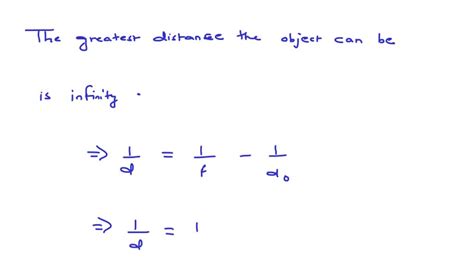 The greatest distance the object can be
is infinity .
⇒ 1/d = 1/f - 1/d₀
⇒ 1/d = 1